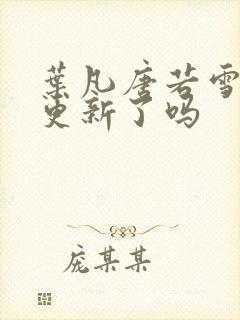 葉凡唐若雪
更新了吗
庞某某